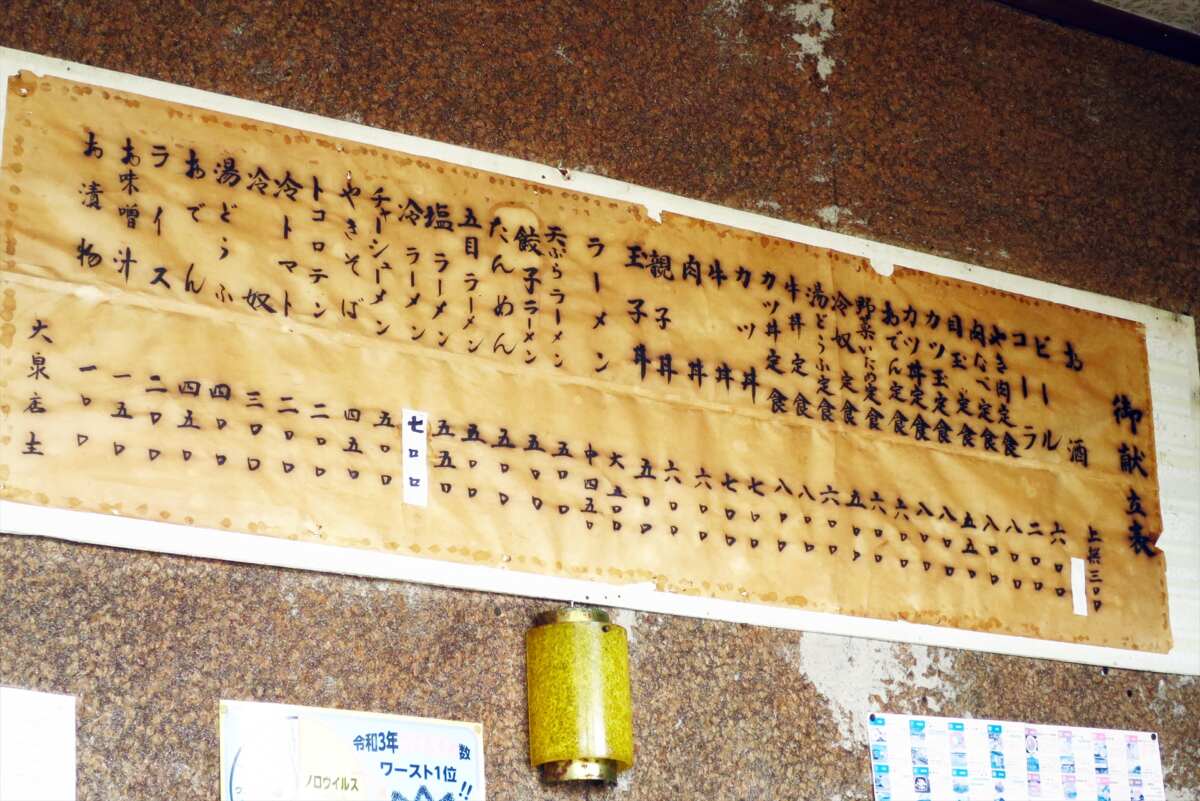 御献立表
お酒 上撰三〇〇
ビール 六〇〇
コーラ 二〇〇
やき肉定食 八〇〇
肉なべ定食 八〇〇
目玉定食 五五〇
カツ玉定食 八〇〇
カツ丼定食 八〇〇
おでん定食 六〇〇
野菜いため定食 六〇〇
冷奴定食 五〇〇
湯どうふ定食 六〇〇
牛丼定食 八〇〇
カツ丼定食 八〇〇
カツ丼 七〇〇
牛丼 七〇〇
肉丼 六〇〇
親子丼 六〇〇
玉子丼 五〇〇
ラーメン 大五〇〇 中四五〇
天ぷらラーメン 五〇〇
餃子ラーメン 五〇〇
たんめん 五〇〇
五目ラーメン 五〇〇
塩ラーメン 五五〇
冷ラーメン 七〇〇
チャーシューメン 五〇〇
やきそば 四五〇
トコロテン 二〇〇
冷トマト 二〇〇
冷奴 三〇〇
湯どうふ 四〇〇
おでん 四五〇
ライス 二〇〇
お味噌汁 一五〇
お漬物 一〇〇
大泉店主
令和3年
数
ワースト1位!!
ノロウイルス